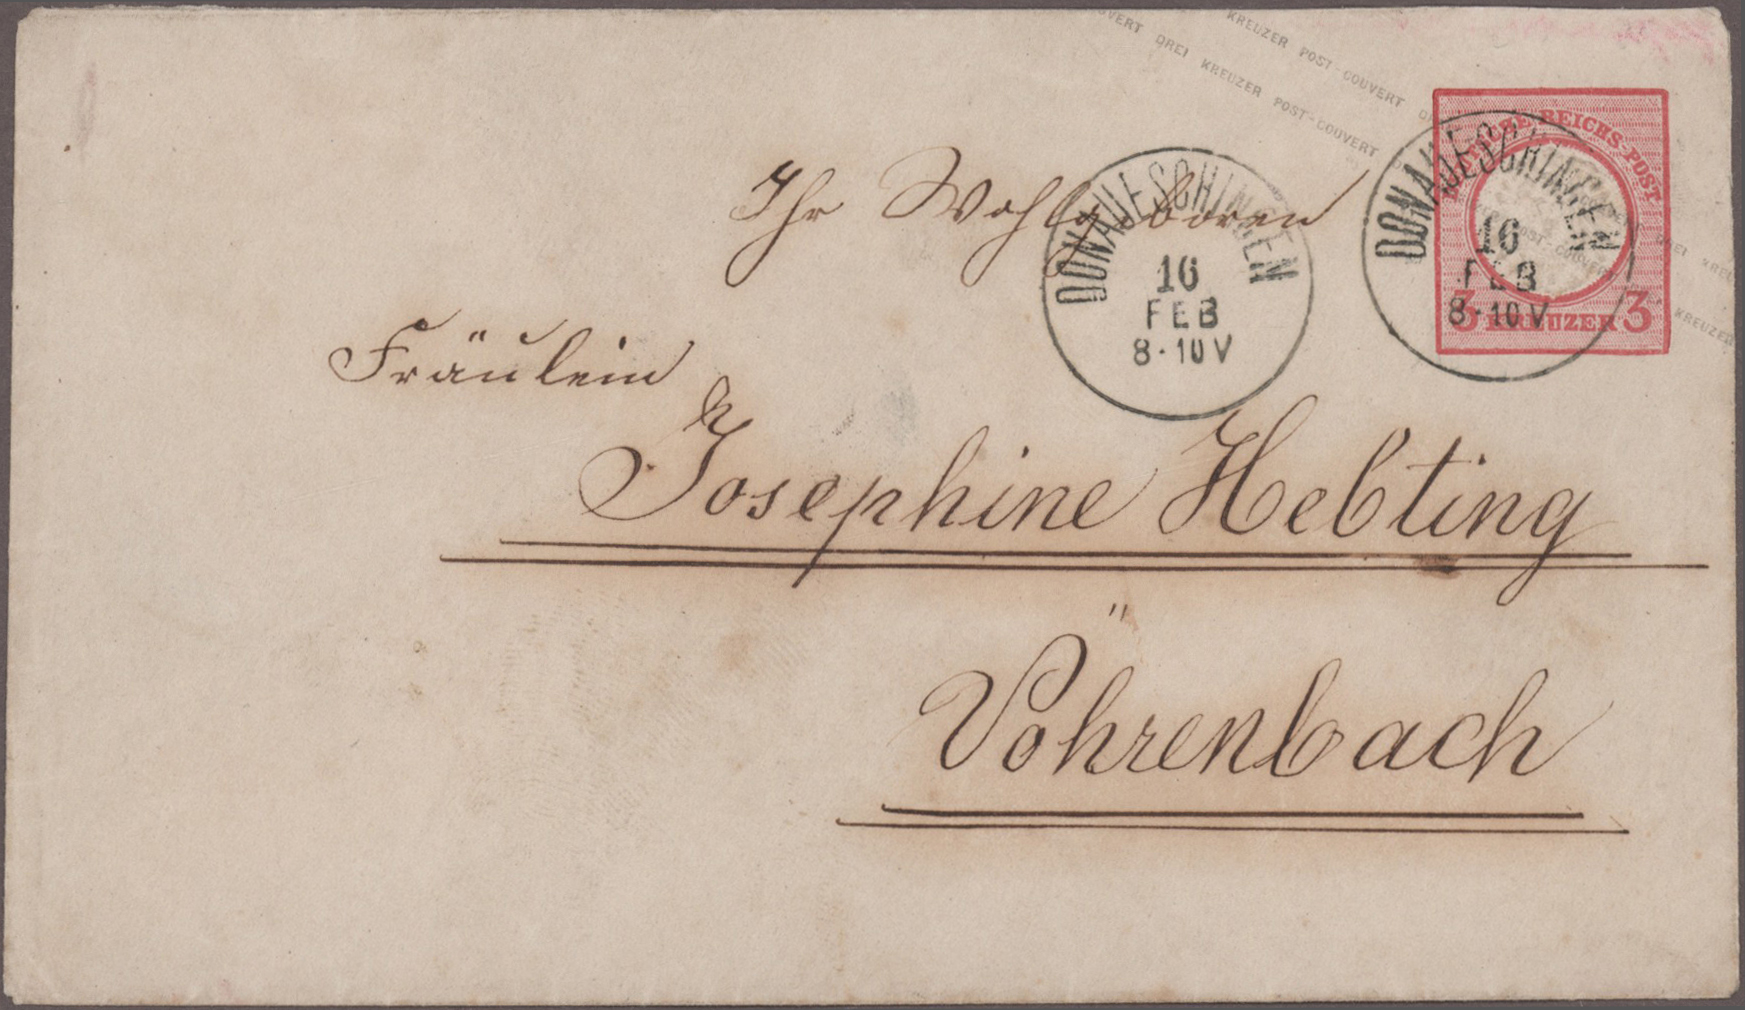 VERT DREI KREUZER POST-COUVERT
KREUZER POST-COUVERT
DEUTSCHE REICHS-POST
3 KREUZER 3
DONAUESCHINGEN
16
FEB
8-10V
DONAUESCHINGEN
16
FEB
8·10V
Ihr Wohlgeboren
Fräulein
Josephine Hebting
Vöhrenbach
POST-COUVERT DREI KREU
KREUZER